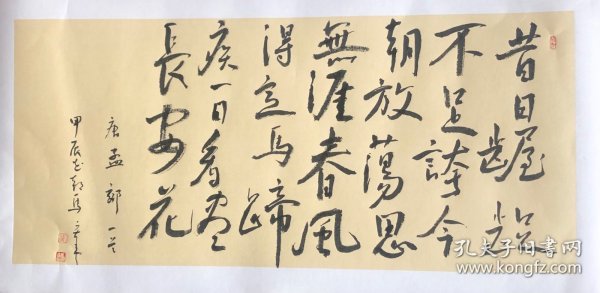 昔日龌龊
不足誇今
朝放蕩思
無涯春風
得意馬蹄
疾一日看盡
長安花
唐孟郊
甲辰
孔夫子旧书网
www.kongfz.com